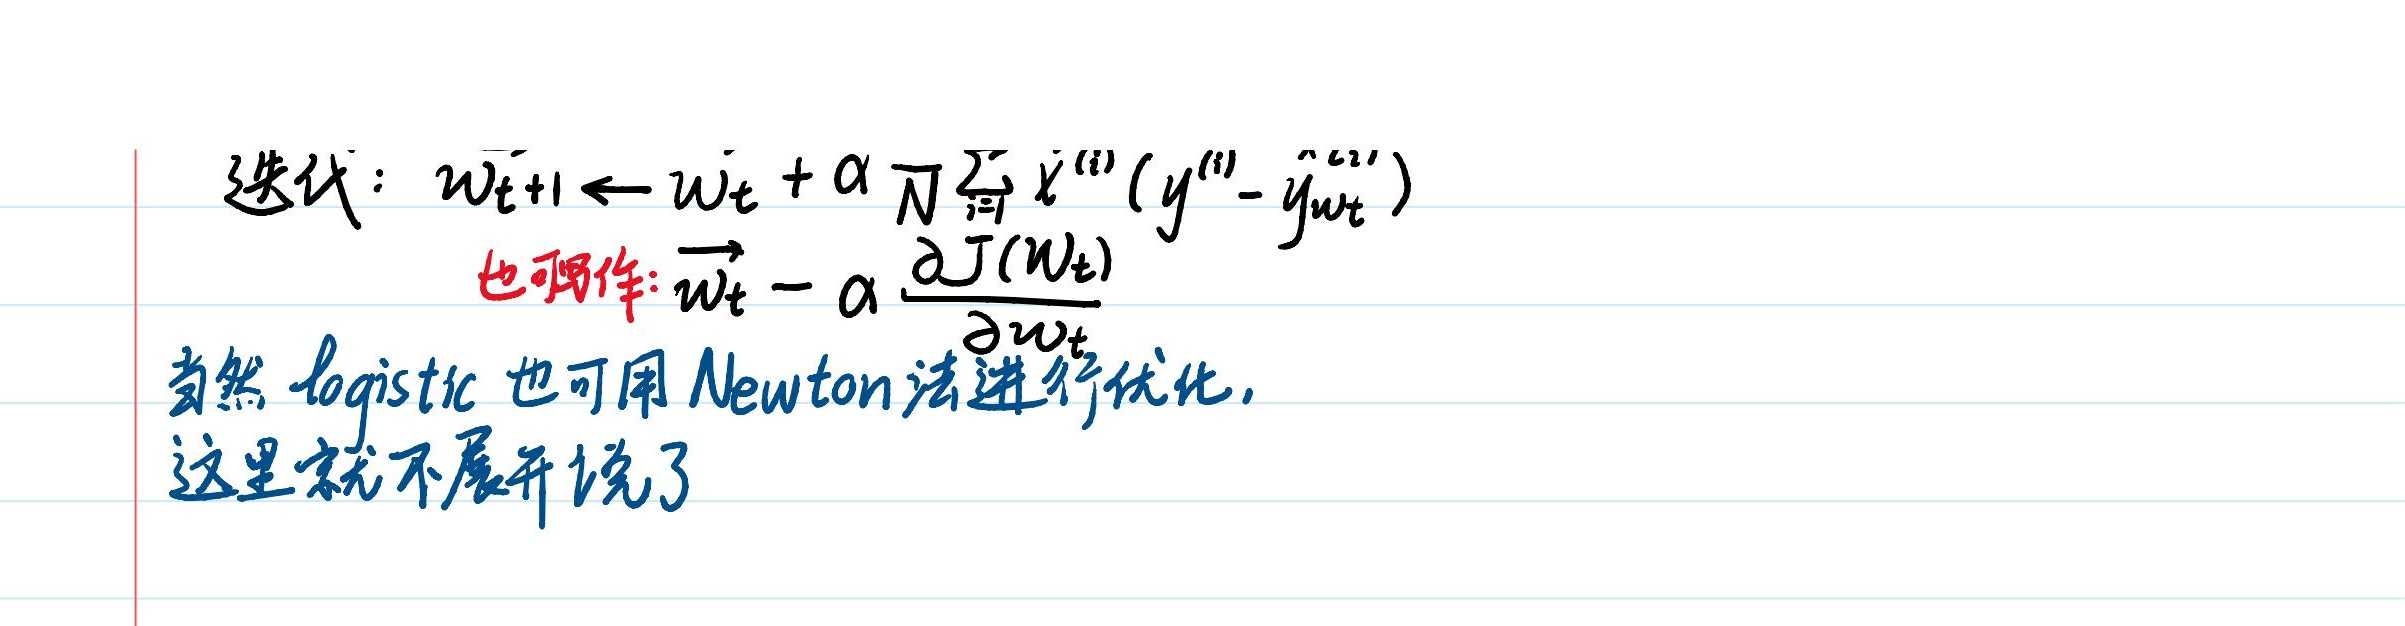 迭代: w_{t+1} ← w_t + α 1/N Σ_{i=1} x^{(i)} (y^{(i)} - ŷ_{w_t}^{(i)})
也可写作: \vec{w_t} - α ∂J(W_t)/∂w_t
当然 logistic 也可用 Newton 法进行优化,
这里就不展开说了